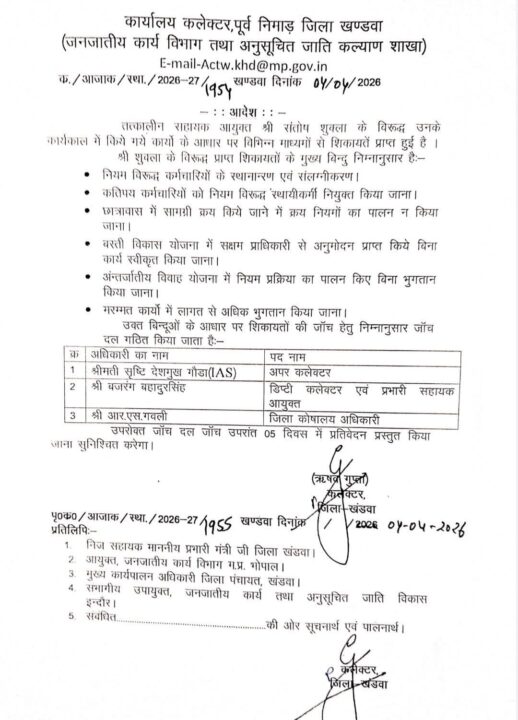 कार्यालय कलेक्टर,पूर्व निमाड़ जिला खण्डवा
(जनजातीय कार्य विभाग तथा अनुसूचित जाति कल्याण शाखा)
E-mail-Actw.khd@mp.gov.in
क./आजाक/स्था./2026-27/1954 खण्डवा दिनांक 04/04/2026
-::आदेश::-
तत्कालीन सहायक आयुक्त श्री संतोष शुक्ला के विरूद्ध उनके
कार्यकाल में किये गये कार्यो के आधार पर विभिन्न माध्यमों से शिकायतें प्राप्त हुई है ।
श्री शुक्ला के विरूद्ध प्राप्त शिकायतों के मुख्य बिन्दु निम्नानुसार है:-
• नियम विरूद्ध कर्मचारियों के स्थानान्रण एवं संलग्नीकरण।
• कतिपय कर्मचारियों को नियम विरूद्ध स्थायीकर्मी नियुक्त किया जाना।
• छात्रावास में सामग्री क्रय किये जाने में क्रय नियमों का पालन न किया
जाना।
• बस्ती विकास योजना में सक्षम प्राधिकारी से अनुमोदन प्राप्त किये बिना
कार्य स्वीकृत किया जाना।
• अंन्तर्जातीय विवाह योजना में नियम प्रक्रिया का पालन किए बिना भुगतान
किया जाना।
• मरम्मत कार्यो में लागत से अधिक भुगतान किया जाना।
उक्त बिन्दूओं के आधार पर शिकायतों की जॉच हेतु निम्नानुसार जॉच
दल गठित किया जाता है:-
क्र अधिकारी का नाम पद नाम
1 श्रीमती सृष्टि देशमुख गौडा(IAS) अपर कलेक्टर
2 श्री बजरंग बहादुरसिंह डिप्टी कलेक्टर एवं प्रभारी सहायक
आयुक्त
3 श्री आर.एस.गवली जिला कोषालय अधिकारी
उपरोक्त जॉच दल जॉच उपरांत 05 दिवस में प्रतिवेदन प्रस्तुत किया
जाना सुनिश्चित करेगा।
(ऋषव गुप्ता)
कलेक्टर,
जिला-खंडवा
पृ०क०/आजाक/स्था./2026-27/1955 खण्डवा दिनांक / /2026 04-04-2026
प्रतिलिपि:-
1. निज सहायक माननीय प्रभारी मंत्री जी जिला खंडवा।
2. आयुक्त, जनजातीय कार्य विभाग म.प्र. भोपाल।
3. मुख्य कार्यपालन अधिकारी जिला पंचायत, खंडवा।
4. सभागीय उपायुक्त, जनजातीय कार्य तथा अनुसूचित जाति विकास
इन्दौर।
5. सबंधित........................................की ओर सूचनार्थ एवं पालनार्थ।
कलेक्टर,
जिला-खंडवा